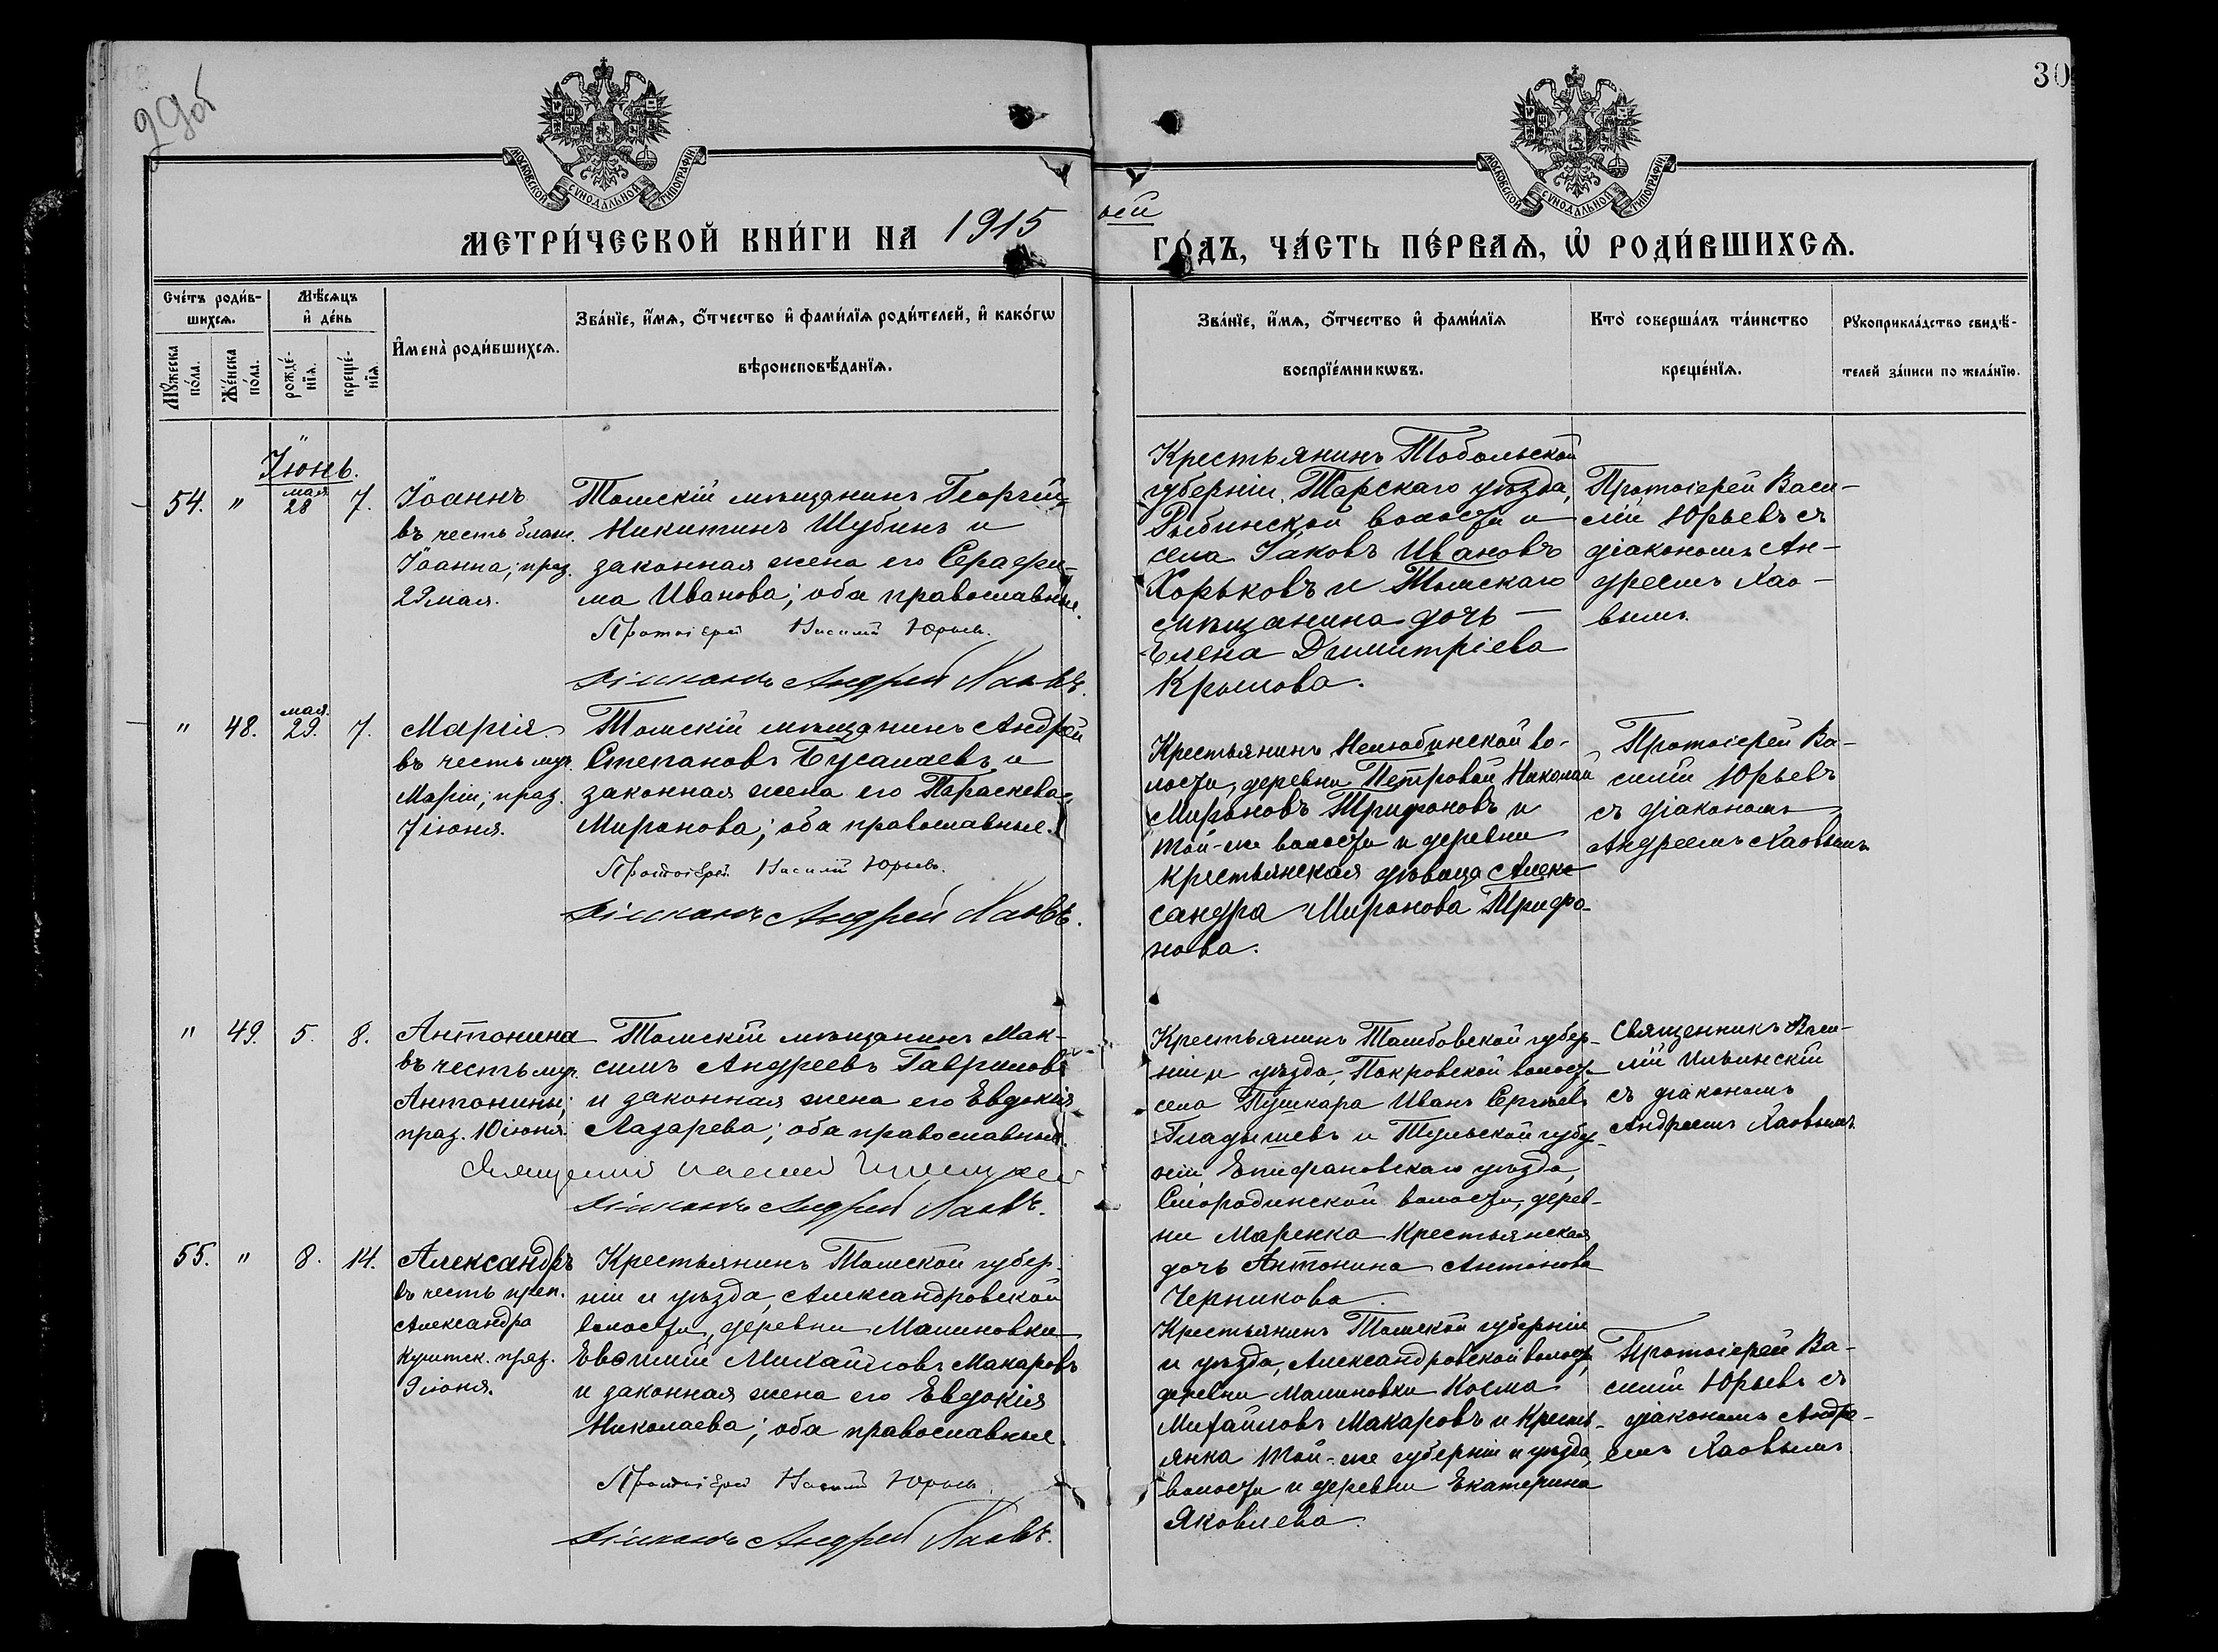 29об
30
МОСКОВСКОЙ СУНОДАЛЬНОЙ ТИПОГРАФІИ
МОСКОВСКОЙ СУНОДАЛЬНОЙ ТИПОГРАФІИ
МЕТРИ́ЧЕСКОЙ КНИ́ГИ НА 1915 ый ГО́ДЪ, ЧА́СТЬ ПЕ́РВАѦ, Ѡ РОДИ́ВШИХСѦ.
Сче́тъ роди́в-
шихсѧ.
Мѣ́сѧцъ
и де́нь
Му́жеска
по́ла.
Же́нска
по́ла.
рожде́-
нїѧ.
креще́-
нїѧ.
Имена̀ роди́вшихсѧ.
Зва́нїе, и́мѧ, о́тчество и фами́лїѧ роди́телей, и како́гѡ
вѣроисповѣ́данїѧ.
Зва́нїе, и́мѧ, о́тчество и фами́лїѧ
воспрїе́мникѡвъ.
Кто̀ соверша́лъ та́инство
креще́нїѧ.
Рꙋкоприкла́дство свидѣ́-
телей за́писи по жела́нїю.
Іюнь.
54. " мая 28 7.
Іоаннъ
въ честь блаж.
Іоанна; праз.
29 мая.
Томскій мѣщанинъ Георгій
Никитинъ Шубинъ и
законная жена его Серафи-
ма Иванова; оба православные.
Протоіерей Василій Юрьевъ.
Діаконъ Андрей Хаовъ.
Крестьянинъ Тобольской
губерніи, Тарскаго уѣзда,
Рыбинской волости и
села Іаковъ Ивановъ
Хорьковъ и Томскаго
мѣщанина дочь —
Елена Димитріева
Крылова.
Протоіерей Васи-
лій Юрьевъ съ
діакономъ Ан-
дреемъ Хао-
вымъ.
" 48. мая 29. 7.
Марія
въ честь муч.
Маріи; праз.
7 іюня.
Томскій мѣщанинъ Андрей
Степановъ Бусалаевъ и
законная жена его Параскева
Миронова; оба православные.
Протоіерей Василій Юрьевъ.
Діаконъ Андрей Хаовъ.
Крестьянинъ Нелюбинской во-
лости, деревни Петровой Николай
Мироновъ Трифоновъ и
той-же волости и деревни
крестьянская дѣвица Алек-
сандра Миронова Трифо-
нова.
Протоіерей Ва-
силій Юрьевъ
съ діакономъ
Андреемъ Хаовымъ.
" 49. 5. 8.
Антонина
въ честь муч.
Антонины;
праз. 10 іюня.
Томскій мѣщанинъ Мак-
симъ Андреевъ Гавриловъ
и законная жена его Евдокія
Лазарева; оба православные.
Священникъ Василій Ильинскій
Діаконъ Андрей Хаовъ.
Крестьянинъ Тамбовской губер-
ніи и уѣзда, Покровской волости
села Пушкара Иванъ Сергѣевъ
Гладышевъ и Тульской губер-
ніи Епифановскаго уѣзда,
Смородинской волости, дерев-
ни Маренка крестьянская
дочь Антонина Антонова
Черникова.
Священникъ Васи-
лій Ильинскій
съ діакономъ
Андреемъ Хаовымъ.
55. " 8. 14.
Александръ
въ честь преп.
Александра
Куштск. праз.
9 іюня.
Крестьянинъ Томской губер-
ніи и уѣзда, Александровской
волости, деревни Малиновки
Евѳимій Михайловъ Макаровъ
и законная жена его Евдокія
Николаева; оба православные.
Протоіерей Василій Юрьевъ.
Діаконъ Андрей Хаовъ.
Крестьянинъ Томской губерніи
и уѣзда, Александровской волости,
деревни Малиновки Косма
Михайловъ Макаровъ и Кресть-
янка той-же губерніи и уѣзда,
волости и деревни Екатерина
Яковлева.
Протоіерей Ва-
силій Юрьевъ съ
діакономъ Андре-
емъ Хаовымъ.